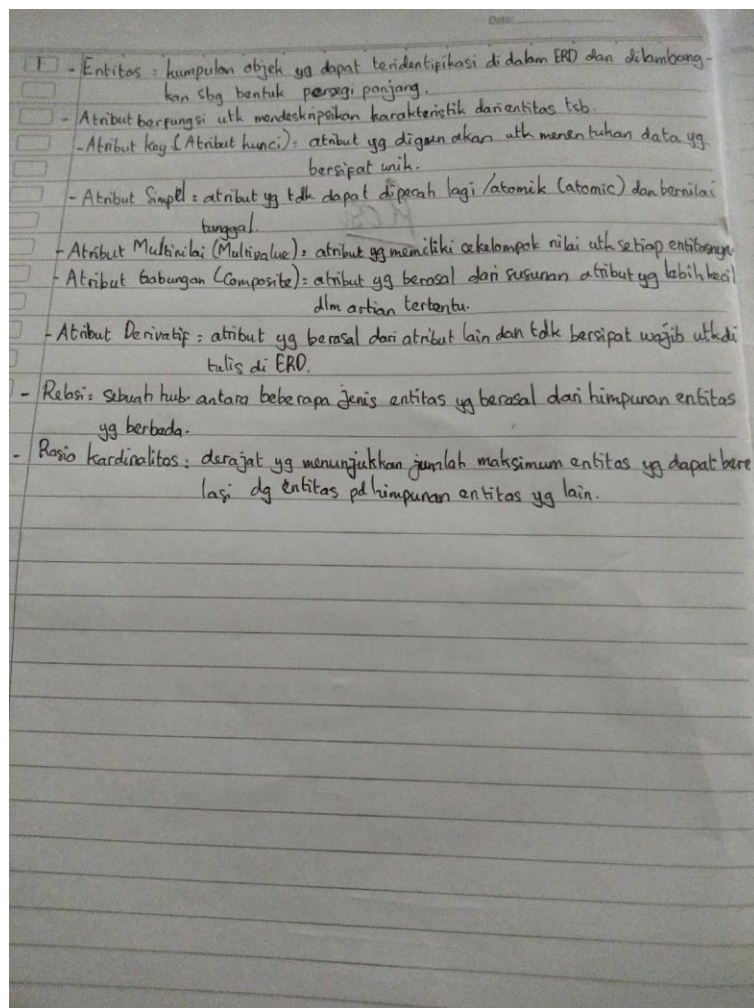 Date:
1 - Entitas : kumpulan objek yg dapat teridentifikasi di dalam ERD dan dilambang-
kan sbg bentuk persegi panjang.
- Atribut berfungsi utk mendeskripsikan karakteristik dari entitas tsb.
- Atribut key (Atribut kunci) : atribut yg digunakan utk menentukan data yg
bersifat unik.
- Atribut Simpel : atribut yg tdk dapat dipecah lagi /atomik (atomic) dan bernilai
tunggal.
- Atribut Multinilai (Multivalue) : atribut yg memiliki sekelompok nilai utk setiap entitasnya.
- Atribut Gabungan (Composite) : atribut yg berasal dari susunan atribut yg lebih kecil
dlm artian tertentu.
- Atribut Derivatif : atribut yg berasal dari atribut lain dan tdk bersifat wajib utk di
tulis di ERD.
- Relasi : sebuah hub. antara beberapa jenis entitas yg berasal dari himpunan entitas
yg berbeda.
- Rasio kardinalitas : derajat yg menunjukkan jumlah maksimum entitas yg dapat bere
lasi dg entitas pd himpunan entitas yg lain.